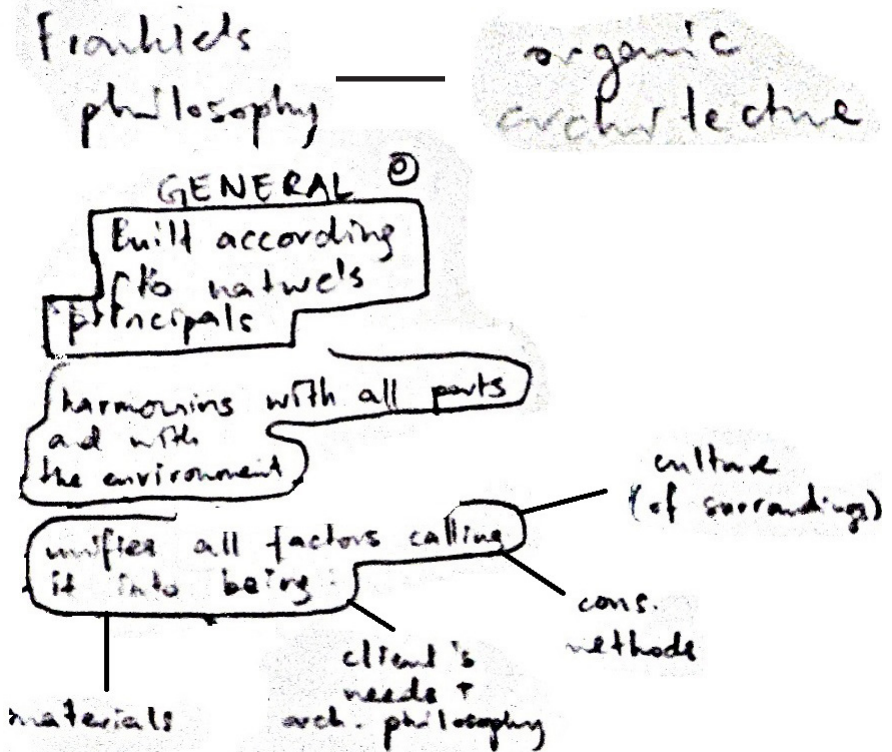 philosophy
organic
architecture
GENERAL
Built according
to nature's
principals
harmonins with all parts
ad with
the environment
unifies all factors calling
it into being:
culture
(of surrandings)
cons.
methods
client's
needs +
arch. philosophy
materials